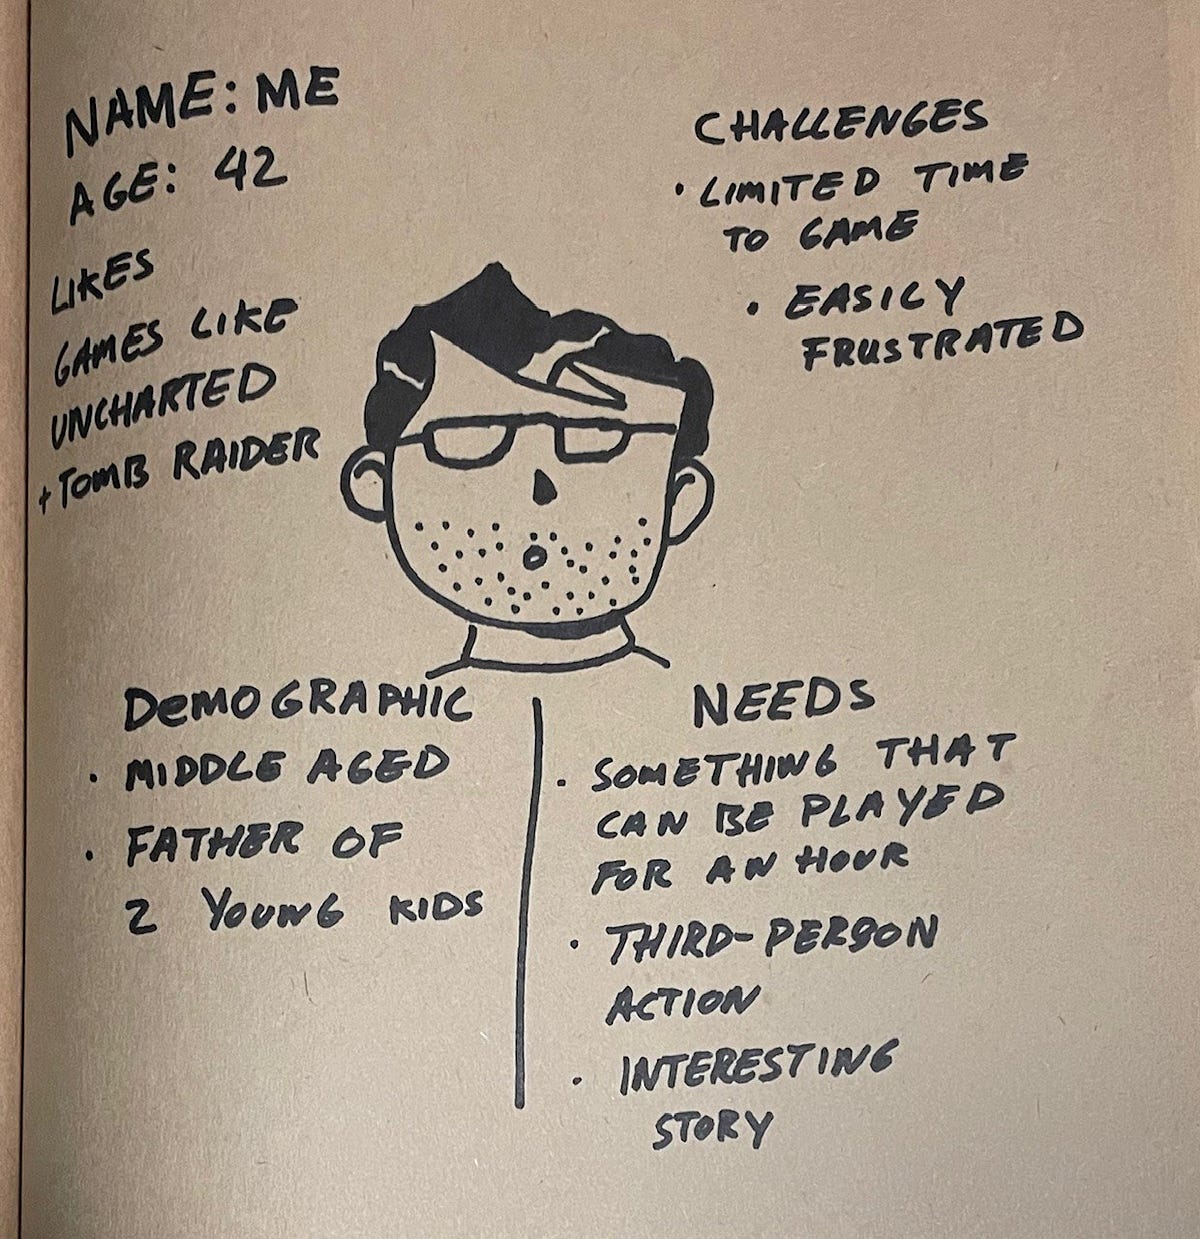 NAME: ME
AGE: 42
LIKES
GAMES LIKE
UNCHARTED
+ TOMB RAIDER
CHALLENGES
• LIMITED TIME
TO GAME
• EASILY
FRUSTRATED
DEMOGRAPHIC
• MIDDLE AGED
• FATHER OF
2 YOUNG KIDS
NEEDS
• SOMETHING THAT
CAN BE PLAYED
FOR AN HOUR
• THIRD-PERSON
ACTION
• INTERESTING
STORY